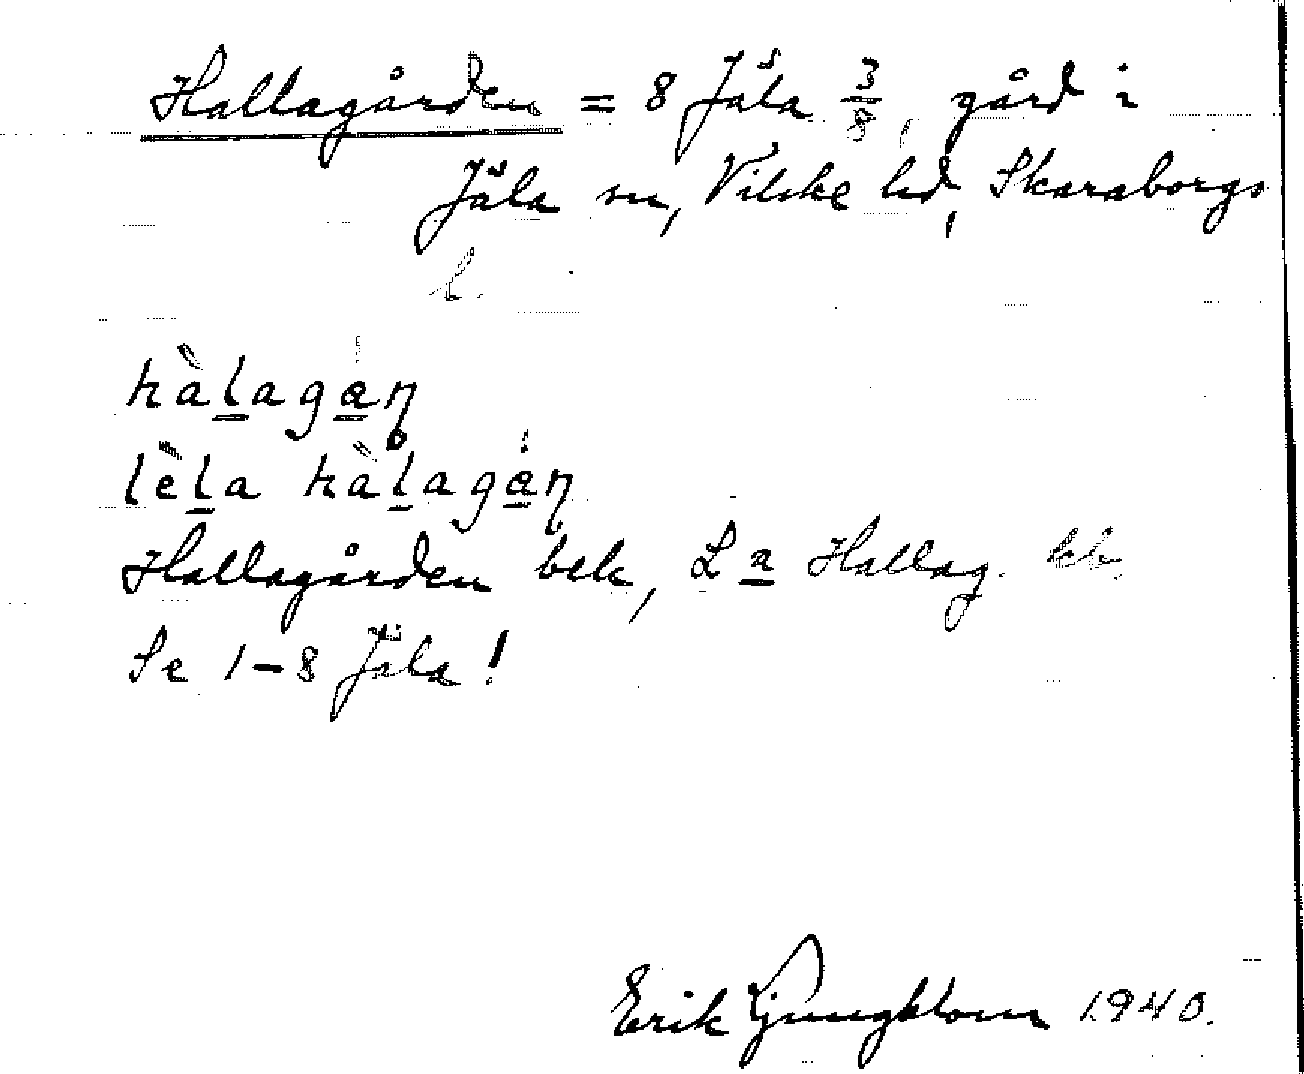 Hallagården = 8 Jäla 3/8, gård i
Jäla sn, Vilske hd, Skaraborgs
l.
hàlagán
lèla hàlagán
Hallagården bek, La Hallag. kb.
Se 1-8 Jäla!
Erik Ljungblom 1940.